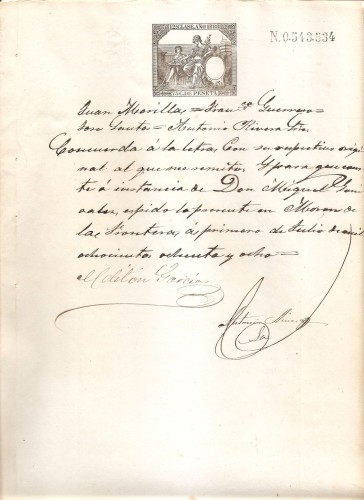 12ª CLASE, AÑO 1888
75 C. DE PESETA
N.0.543.534
Juan Morilla = Franco Guerrero =
Jose Santos = Antonio Rivera Srio
Concuerda á la letra con su respectivo origi
nal al que me remito. Y para que cons
te á instancia de Don Miguel
expido la presente en Moron de
la Frontera, á primero de Julio de mil
ochocientos ochenta y ocho =
Melitón García
Antonio Rivera